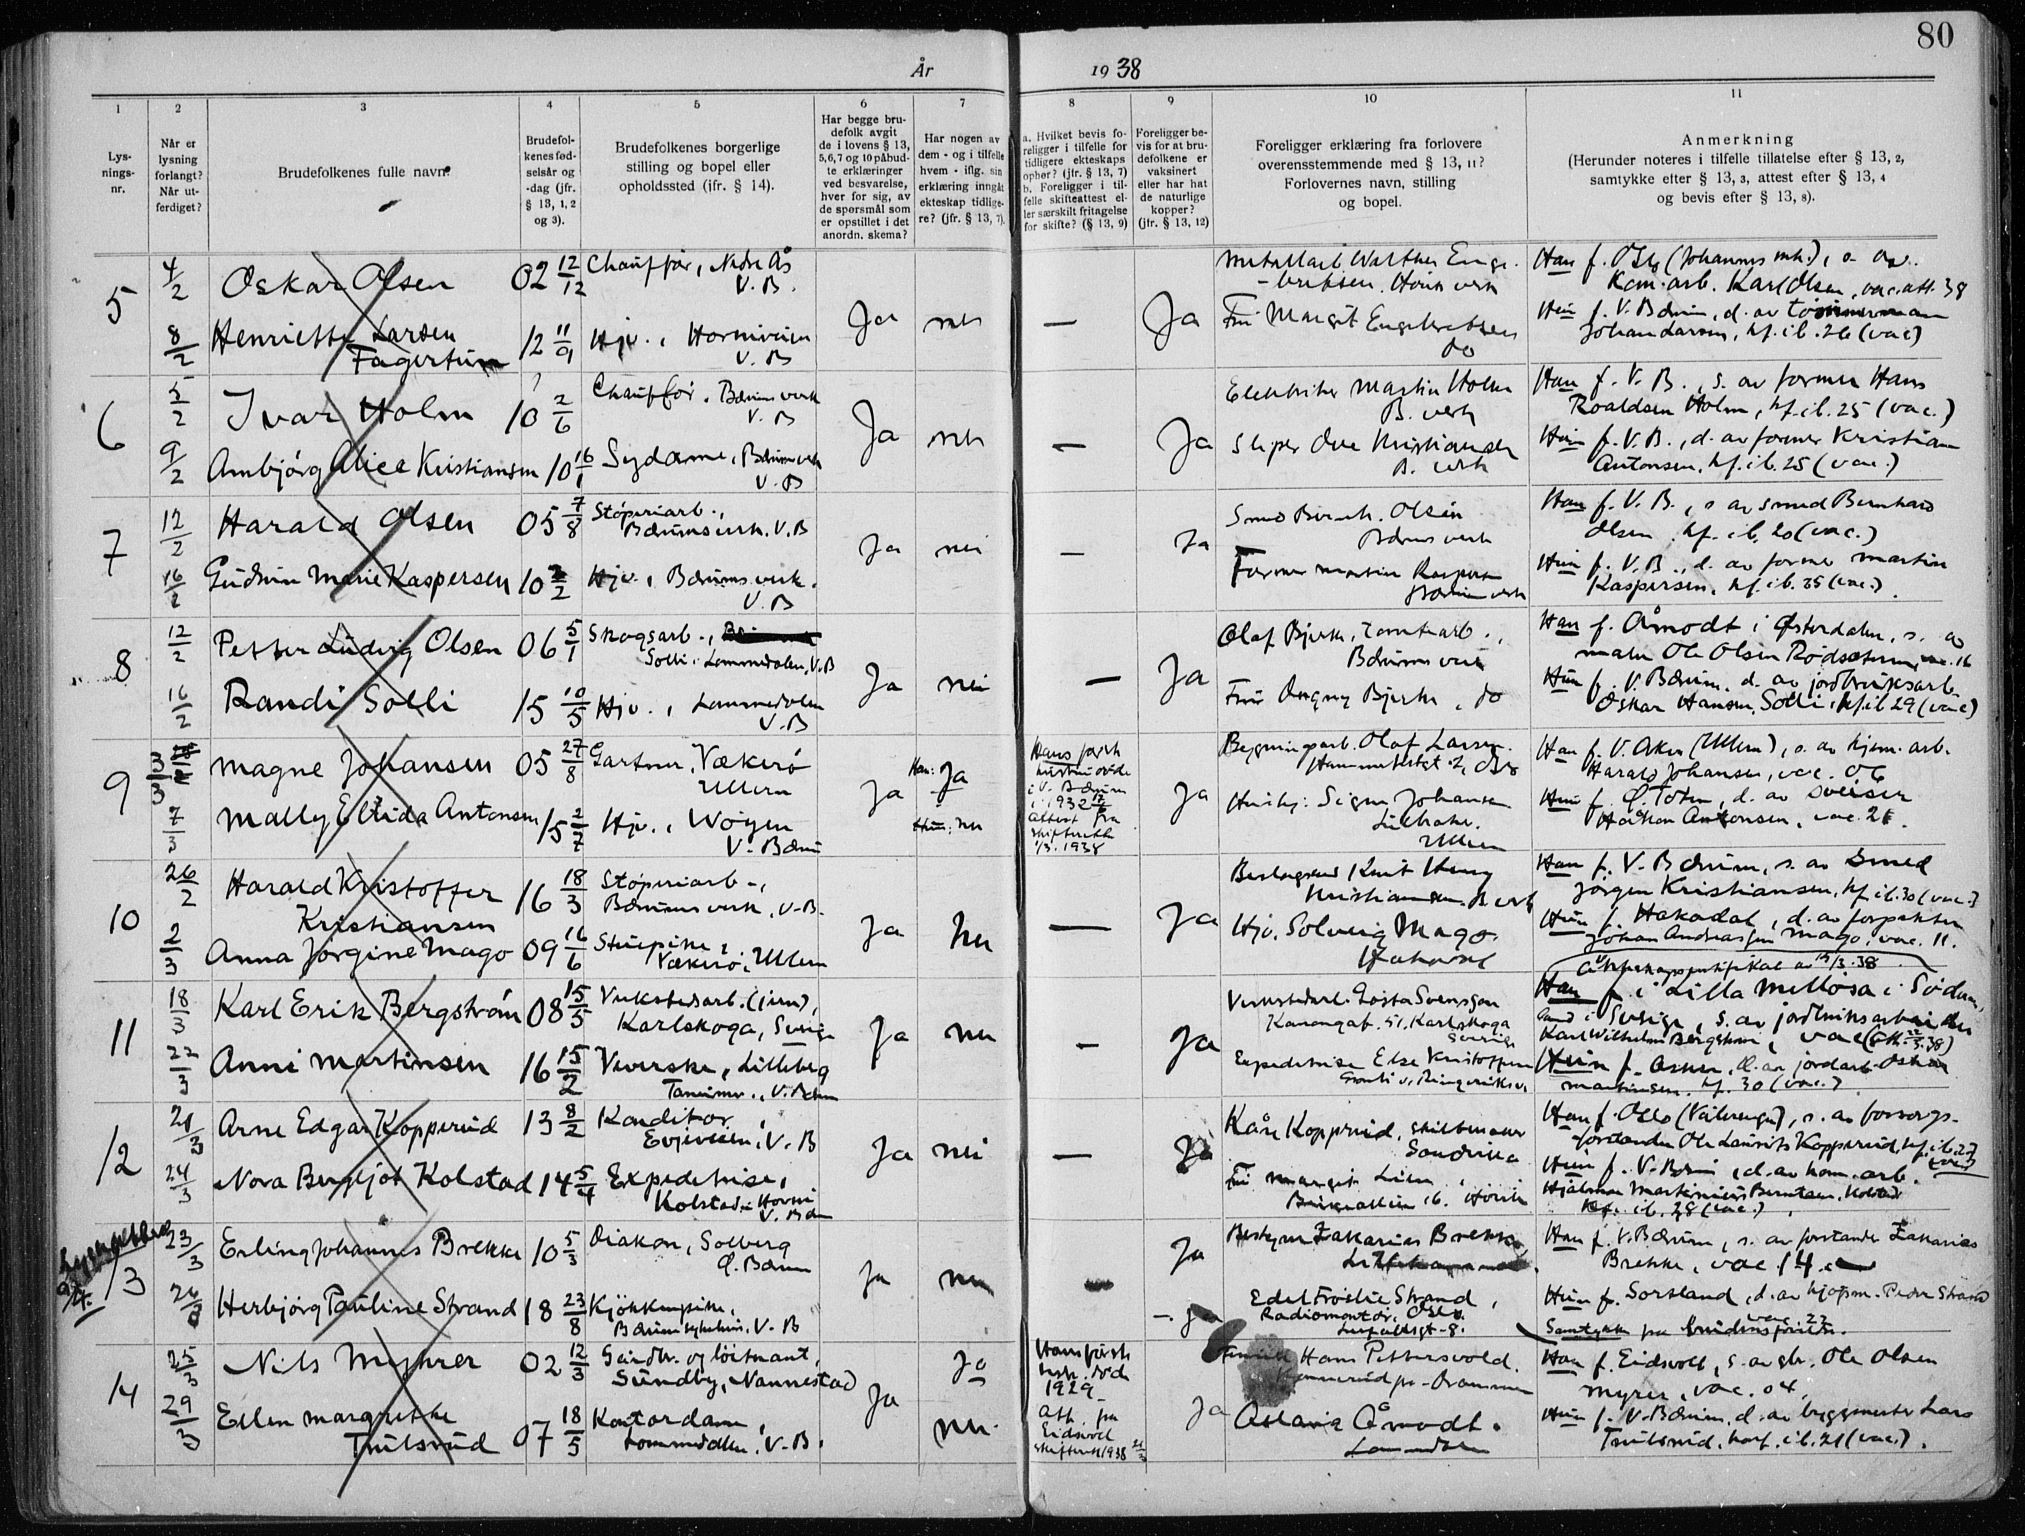 80
År 1938
1 2 3 4 5 6 7 8 9 10 11
Lys-
nings-
nr.
Når er
lysning
forlangt?
Når ut-
ferdiget?
Brudefolkenes fulle navn.
Brudefol-
kenes fød-
selsår og
-dag (jfr.
§ 13, 1, 2
og 3).
Brudefolkenes borgerlige
stilling og bopel eller
opholdssted (jfr. § 14).
Har begge bru-
defolk avgit
de i lovens § 13,
5,6,7 og 10 påbud-
te erklæringer
ved besvarelse,
hver for sig, av
de spørsmål som
er opstillet i det
anordn. skema?
Har nogen av
dem - og i tilfelle
hvem - iflg. sin
erklæring inngått
ekteskap tidlige-
re? (jfr. § 13, 7).
a. Hvilket bevis fo-
religger i tilfelle for
tidligere ekteskaps
ophør? (jfr. § 13, 7)
b. Foreligger i til-
felle skifteattest el-
ler særskilt fritagelse
for skifte? (§ 13, 9)
Foreligger be-
vis for at bru-
defolkene er
vaksinert
eller har hat
de naturlige
kopper?
(jfr. § 13, 12)
Foreligger erklæring fra forlovere
overensstemmende med § 13, 11?
Forlovernes navn, stilling
og bopel.
Anmerkning
(Herunder noteres i tilfelle tillatelse efter § 13, 2,
samtykke efter § 13, 3, attest efter § 13, 4
og bevis efter § 13, 8).
5
4/2 Oskar Olsen 02 12/12 Chauffør, Nedre Ås
V. B.
Ja nei — Ja
Han f. Oslo (Johannes mh.), s. av
Kom. arb. Karl Olsen, vac. att. 38
8/2 Henriette Larsen
Fagertun
12 11/9 Hjv.,
V. B
Fru Margit Engebretsen
do
Hun f. V. Bærum, d. av tømmermann
Johan Larsen, kf. i b. 26 (vac)
6
5/2 Ivar Holm 10 2/6 Chauffør. Bærums verk
V. B
Ja nei — Ja
Elektriker Martin Holm
B. verk
Han f. V. B., s. av former Hans
Roaldsen Holm, kf. i b. 25 (vac.)
9/2 Ambjørg Alice Kristiansen 10 16/1 Sydame, Bærums verk
V. B
Kristiansen
B. verk
Hun f. V. B., d. av former Kristian
Antonsen, kf. i b. 25 (vac.)
7
12/2 Harald Olsen 05 7/8 Støperiarb.,
Bærums verk. V. B
Ja nei — Ja
Smed Bernh. Olsen
Bærums verk
Han f. V. B., s. av smed Bernhard
Olsen, kf. i b. 20 (vac.)
16/2 Gudrun Marie Kaspersen 10 2/2 Hjv., Bærums verk.
V. B
Former Martin Kaspersen
Bærums verk
Hun f. V. B., d. av former Martin
Kaspersen, kf. i b. 35 (vac.).
8
12/2 Petter Ludvig Olsen 06 5/1 Skogsarb.,
Solli, Lommedalen, V. B
Ja nei — Ja
Olaf Bjerke, Tomtearb.,
Bærums verk
Han f. Åmodt i Østerdalen, s. av
maler Ole Olsen Rødseteren, vac. 16
16/2 Randi Solli 15 10/5 Hjv., Lommedalen
V. B
Fru Dagny Bjerke, do
Hun f. V. Bærum, d. av jordbruksarb.
Oskar Hansen Solli, kf. i b 29 (vac)
9
3/3 Magne Johansen 05 27/8 Gartner, Vækerø
Ullern
Ja Han: Ja
Hun: nei
Hans forrige
hustru døde
i V. Bærum
i 1932
Attest fra
skifteretten
1/3. 1938
Ja
Bygningsarb. Olaf Larsen.
Oslo
Han f. V. Aker (Ullern), s. av hjem. arb.
Harald Johansen, vac. 06
7/3 Mally Elfrida Antonsen 15 2/7 Hjv., Wøyen
V. Bærum
Signe Johansen
Lilleaker.
Ullern
Hun f. Ø. Toten, d. av sveiser
Håkon Antonsen, vac. 21.
10
26/2 Harald Kristoffer
Kristiansen
16 18/3 Støperiarb.,
Bærums verk, V. B.
Ja nei — Ja
Knut Henry
Kristiansen. B. verk
Han f. V. Bærum, s. av smed
Jørgen Kristiansen, kf. i b. 30 (vac.)
2/3 Anna Jørgine Mago 09 16/6 Stuepike,
Vækerø, Ullern
Hjv. Solveig Mago.
Hakadal
Hun f. Hakadal, d. av forpakter
Johan Andreassen Mago, vac. 11.
11
18/3 Karl Erik Bergström 08 15/5 Verkstedarb. (jern),
Karlskoga, Sverige
Ja nei – Ja
Verkstedarb. Gösta Svensson
51, Karlskoga
Sverige
15/3. 38
Han f. i Lilla Mellösa i Söderman-
land i Sverige, s. av jordbruksarbeider
Karl Wilhelm Bergström, vac (att. 22/3.38)
22/3 Anni Martinsen 16 15/2 Veverske, Lilleberg
Tanum., V. Bærum
Expeditrise Else Kristoffersen
Hun f. Asker, d. av jordarb. Oskar
Martinsen, kf. 30 (vac.)
12
21/3 Arne Edgar Kopperud 13 8/2 Konditor,
Evjeveien, V. B
Ja nei — Ja
Kåre Kopperud, skiltmaler
Sandvika
Han f. Oslo (Vålerenga), s. av forsorgs-
forstander Ole Laurits Kopperud, kf. i b. 27
vac)
24/3 Nora Bergljot Kolstad 14 5/4 Expeditrise,
Kolstad, Høvik
V. Bærum
Fru Margit Lien,
16. Høvik
Hun f. V. Bærum, d. av kom. arb.
Hjalmar Martinius Berntsen Kolstad
kf. i b. 28 (vac.).
13
23/3 Erling Johannes Brekke 10 5/3 Diakon, Solberg
Ø. Bærum
Ja nei — Ja
Bestyrer Zakarias Brekke,
Han f. V. Bærum, s. av forstander Zakarias
Brekke, vac 14.
26/3 Herbjørg Pauline Strand 18 23/8 Kjøkkenpike,
Bærum sykehus, V. B
– Ja
Edel Frøslie Strand,
Radiomontør, Oslo.
Hun f. Sortland, d. av kjøpm. Peder Strand
vac. 22
Samtykke fra brudens foreldre.
14
25/3 Nils Myhrer 02 12/3 Gårdbr. og løitnant,
Sundby, Nannestad
Ja Ja
nei.
Hans forrige
hustr. døde
1929
Att. fra
Eidsvoll
skifterett 1938
Ja
Hans Pettersvold.
Konnerud pr. Drammen
Han f. Eidsvoll, s. av gbr. Ole Olsen
Myrer, vac. 04.
29/3 Ellen Margrethe
Trulsrud
07 18/5 Kontordame,
Lommedalen, V. B.
Aslaug Åmodt.
Lommedalen
Hun f. V. Bærum, d. av byggmester Lars
Trulsrud, konf. i b. 21 (vac.).